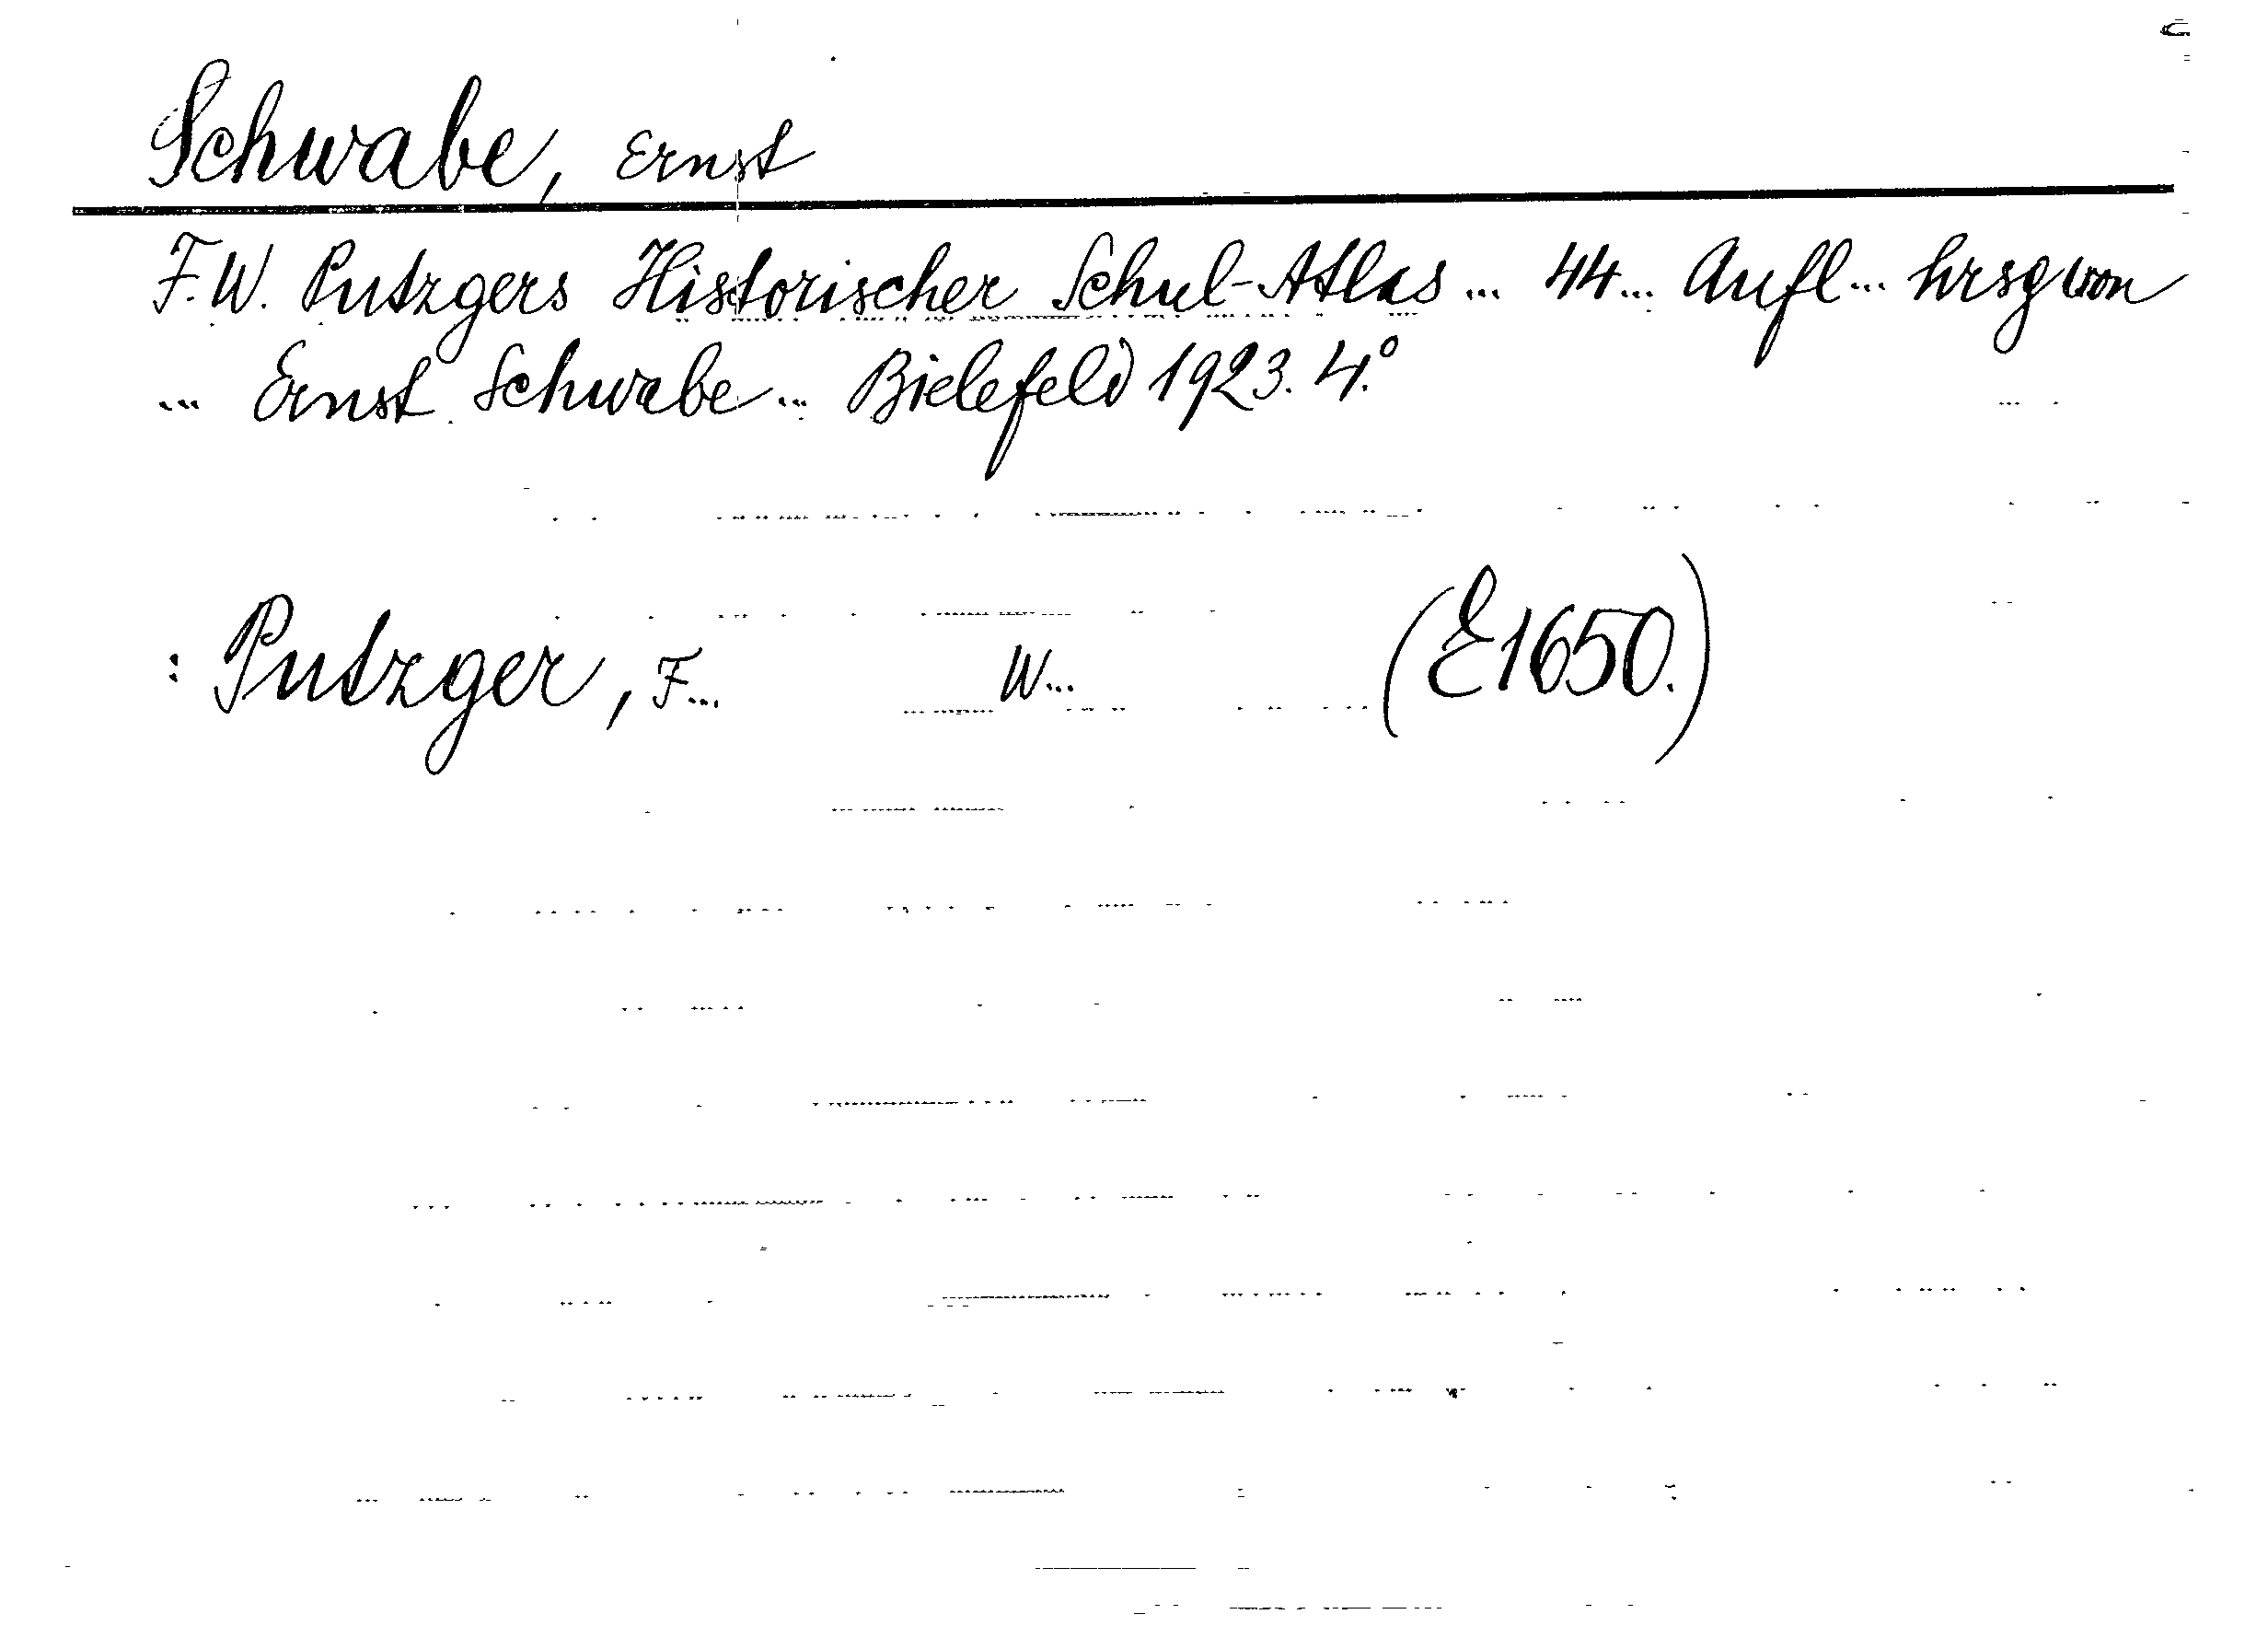 Schwabe, Ernst
F. W. Putzgers Historischer Schul-Atlas ... 44... Aufl... hrsg von
... Ernst Schwabe ... Bielefeld 1923. 4.°
: Putzger, F... W... (E1650.)